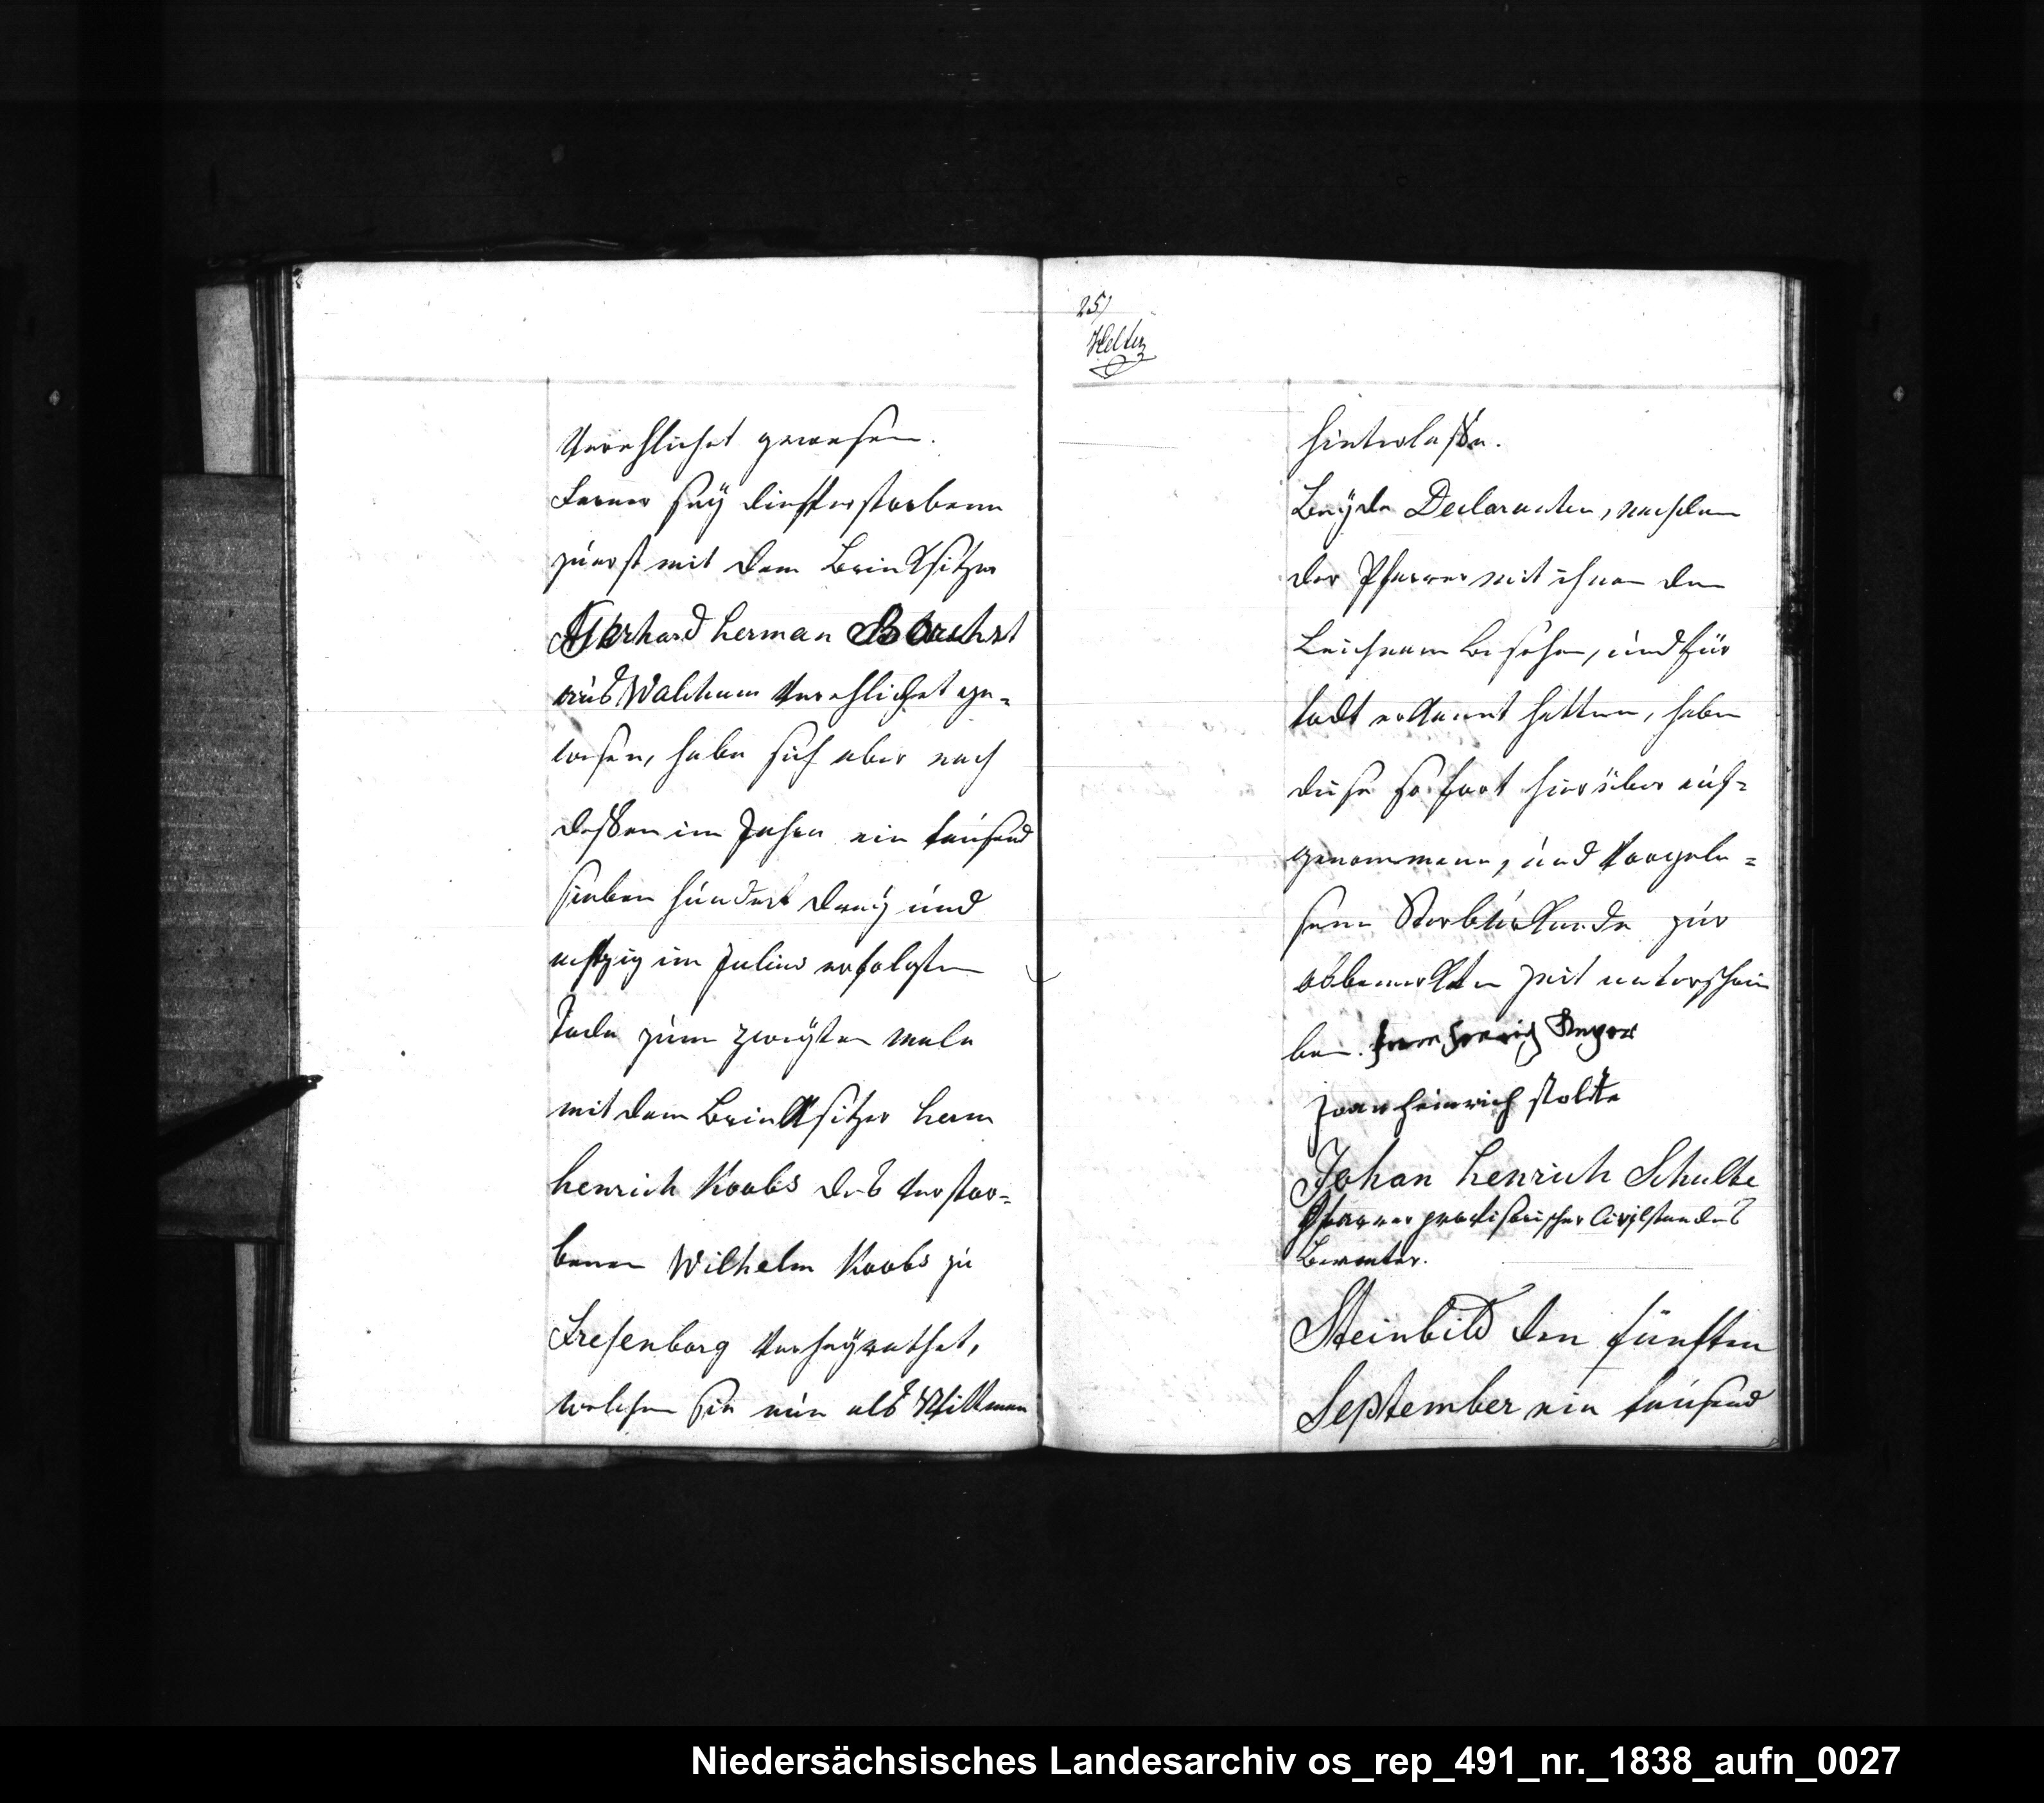 verehlichet gewesen.
Ferner seÿ die Verstorbene
zuerst mit dem Brinksitzer
Gerhard Herman Borchert
aus Walchum verehlichet ge-
wesen, habe sich aber nach
deßen im Jahre ein tausend
sieben hundert dreÿ und
achtzig im Julius erfolgten
Tode zum zweÿten male
mit dem Brinksitzer Herm
Henrich Koobs des verstor-
benen Wilhelm Koobs zu
Fresenborg verheÿrathet,
welchen sie nun als Wittman
25)
hinterlaße.
Beÿde Declaranten, nachdem
der Pfarrer mit ihnen den
Leichnam besehen, und für
todt erkannt hatten, haben
diese sofort hierüber auf-
genommene, und vorgele-
sene Sterburkunde zur
obbemerkten Zeit unterschrie
ben.
Joan Heinrich Stolte
Johan Henrich Schulte
Pfarrer provisorischer Civilstandes
Beamter.
Steinbild den fünften
September ein tausend
Niedersächsisches Landesarchiv os_rep_491_nr._1838_aufn_0027